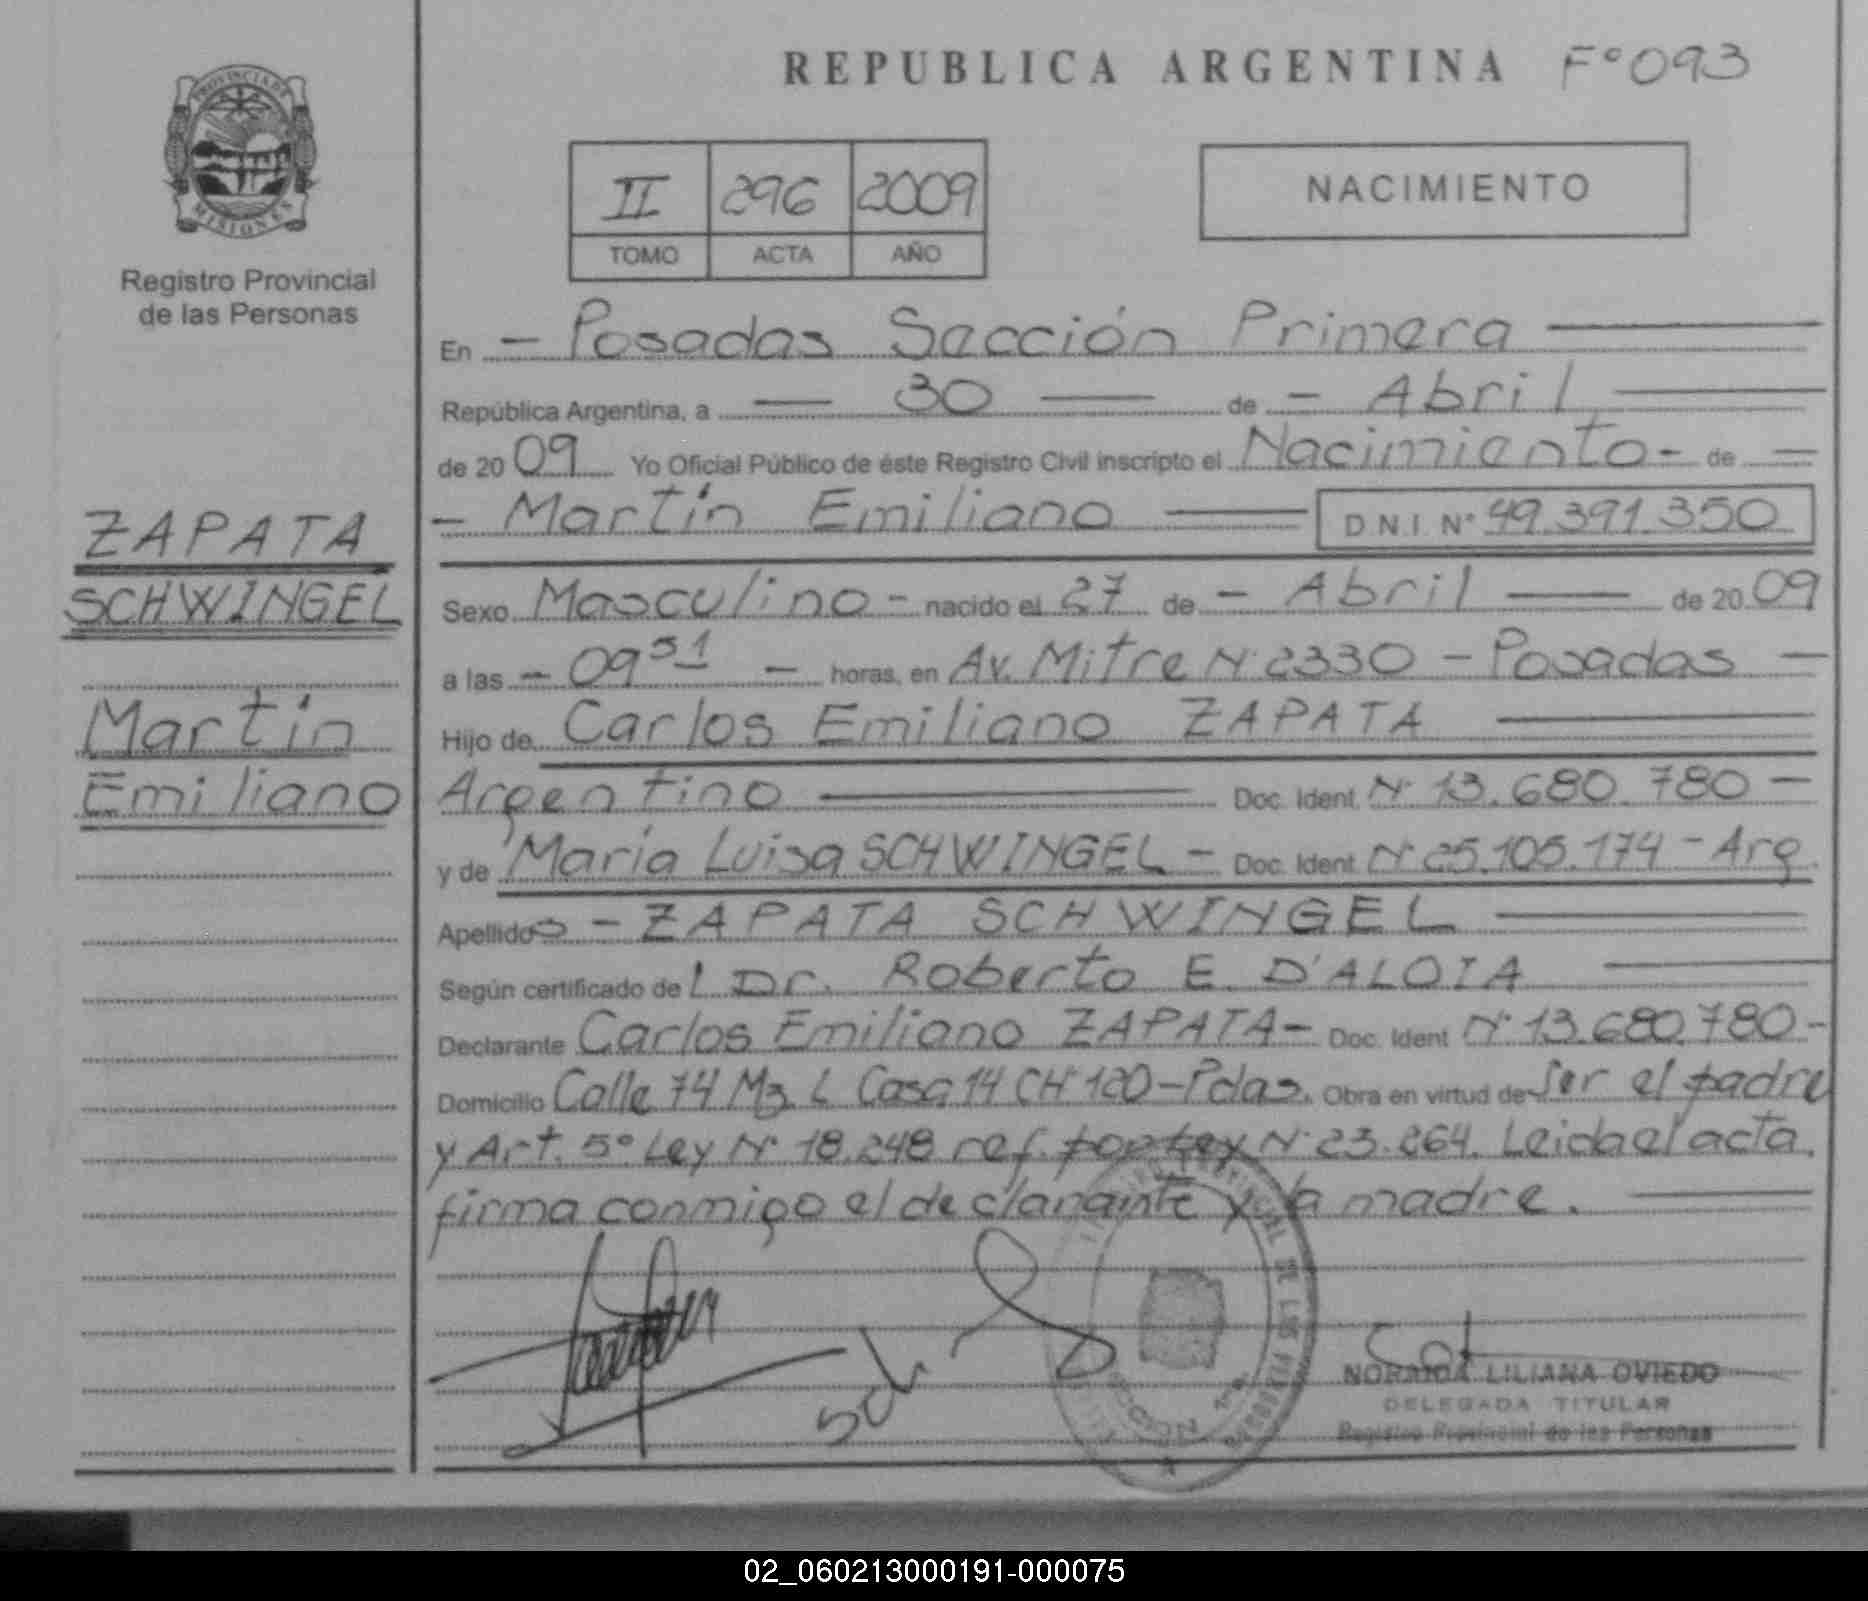 PROVINCIA DE
MISIONES
Registro Provincial
de las Personas
ZAPATA
SCHWINGEL
Martín
Emiliano
REPUBLICA ARGENTINA F° 093
II 296 2009
TOMO ACTA AÑO
NACIMIENTO
En - Posadas Sección Primera
República Argentina, a — 30 — de - Abril
de 20 09 Yo Oficial Público de éste Registro Civil inscripto el Nacimiento - de -
- Martín Emiliano — D.N.I. N° 49.391.350
Sexo Masculino - nacido el 27 de - Abril — de 20 09
a las - 09 51 - horas, en Av. Mitre N° 2330 - Posadas -
Hijo de Carlos Emiliano ZAPATA
Argentino — Doc. Ident. N° 13.680.780 -
y de María Luisa SCHWINGEL - Doc. Ident. N° 25.105.174 - Arg.
Apellidos - ZAPATA SCHWINGEL
Según certificado del Dr. Roberto E. D'ALOIA
Declarante Carlos Emiliano ZAPATA - Doc. Ident N° 13.680.780 -
Domicilio Calle 74 Mz. L Casa 14 CH° 120 - Pdas. Obra en virtud de Ser el padre
y Art. 5° Ley N° 18.248 ref. por Ley N° 23.264. Leida el acta,
firma conmigo el declarante y la madre.
NORAIDA LILIANA OVIEDO
DELEGADA TITULAR
Registro Provincial de las Personas
02_060213000191-000075